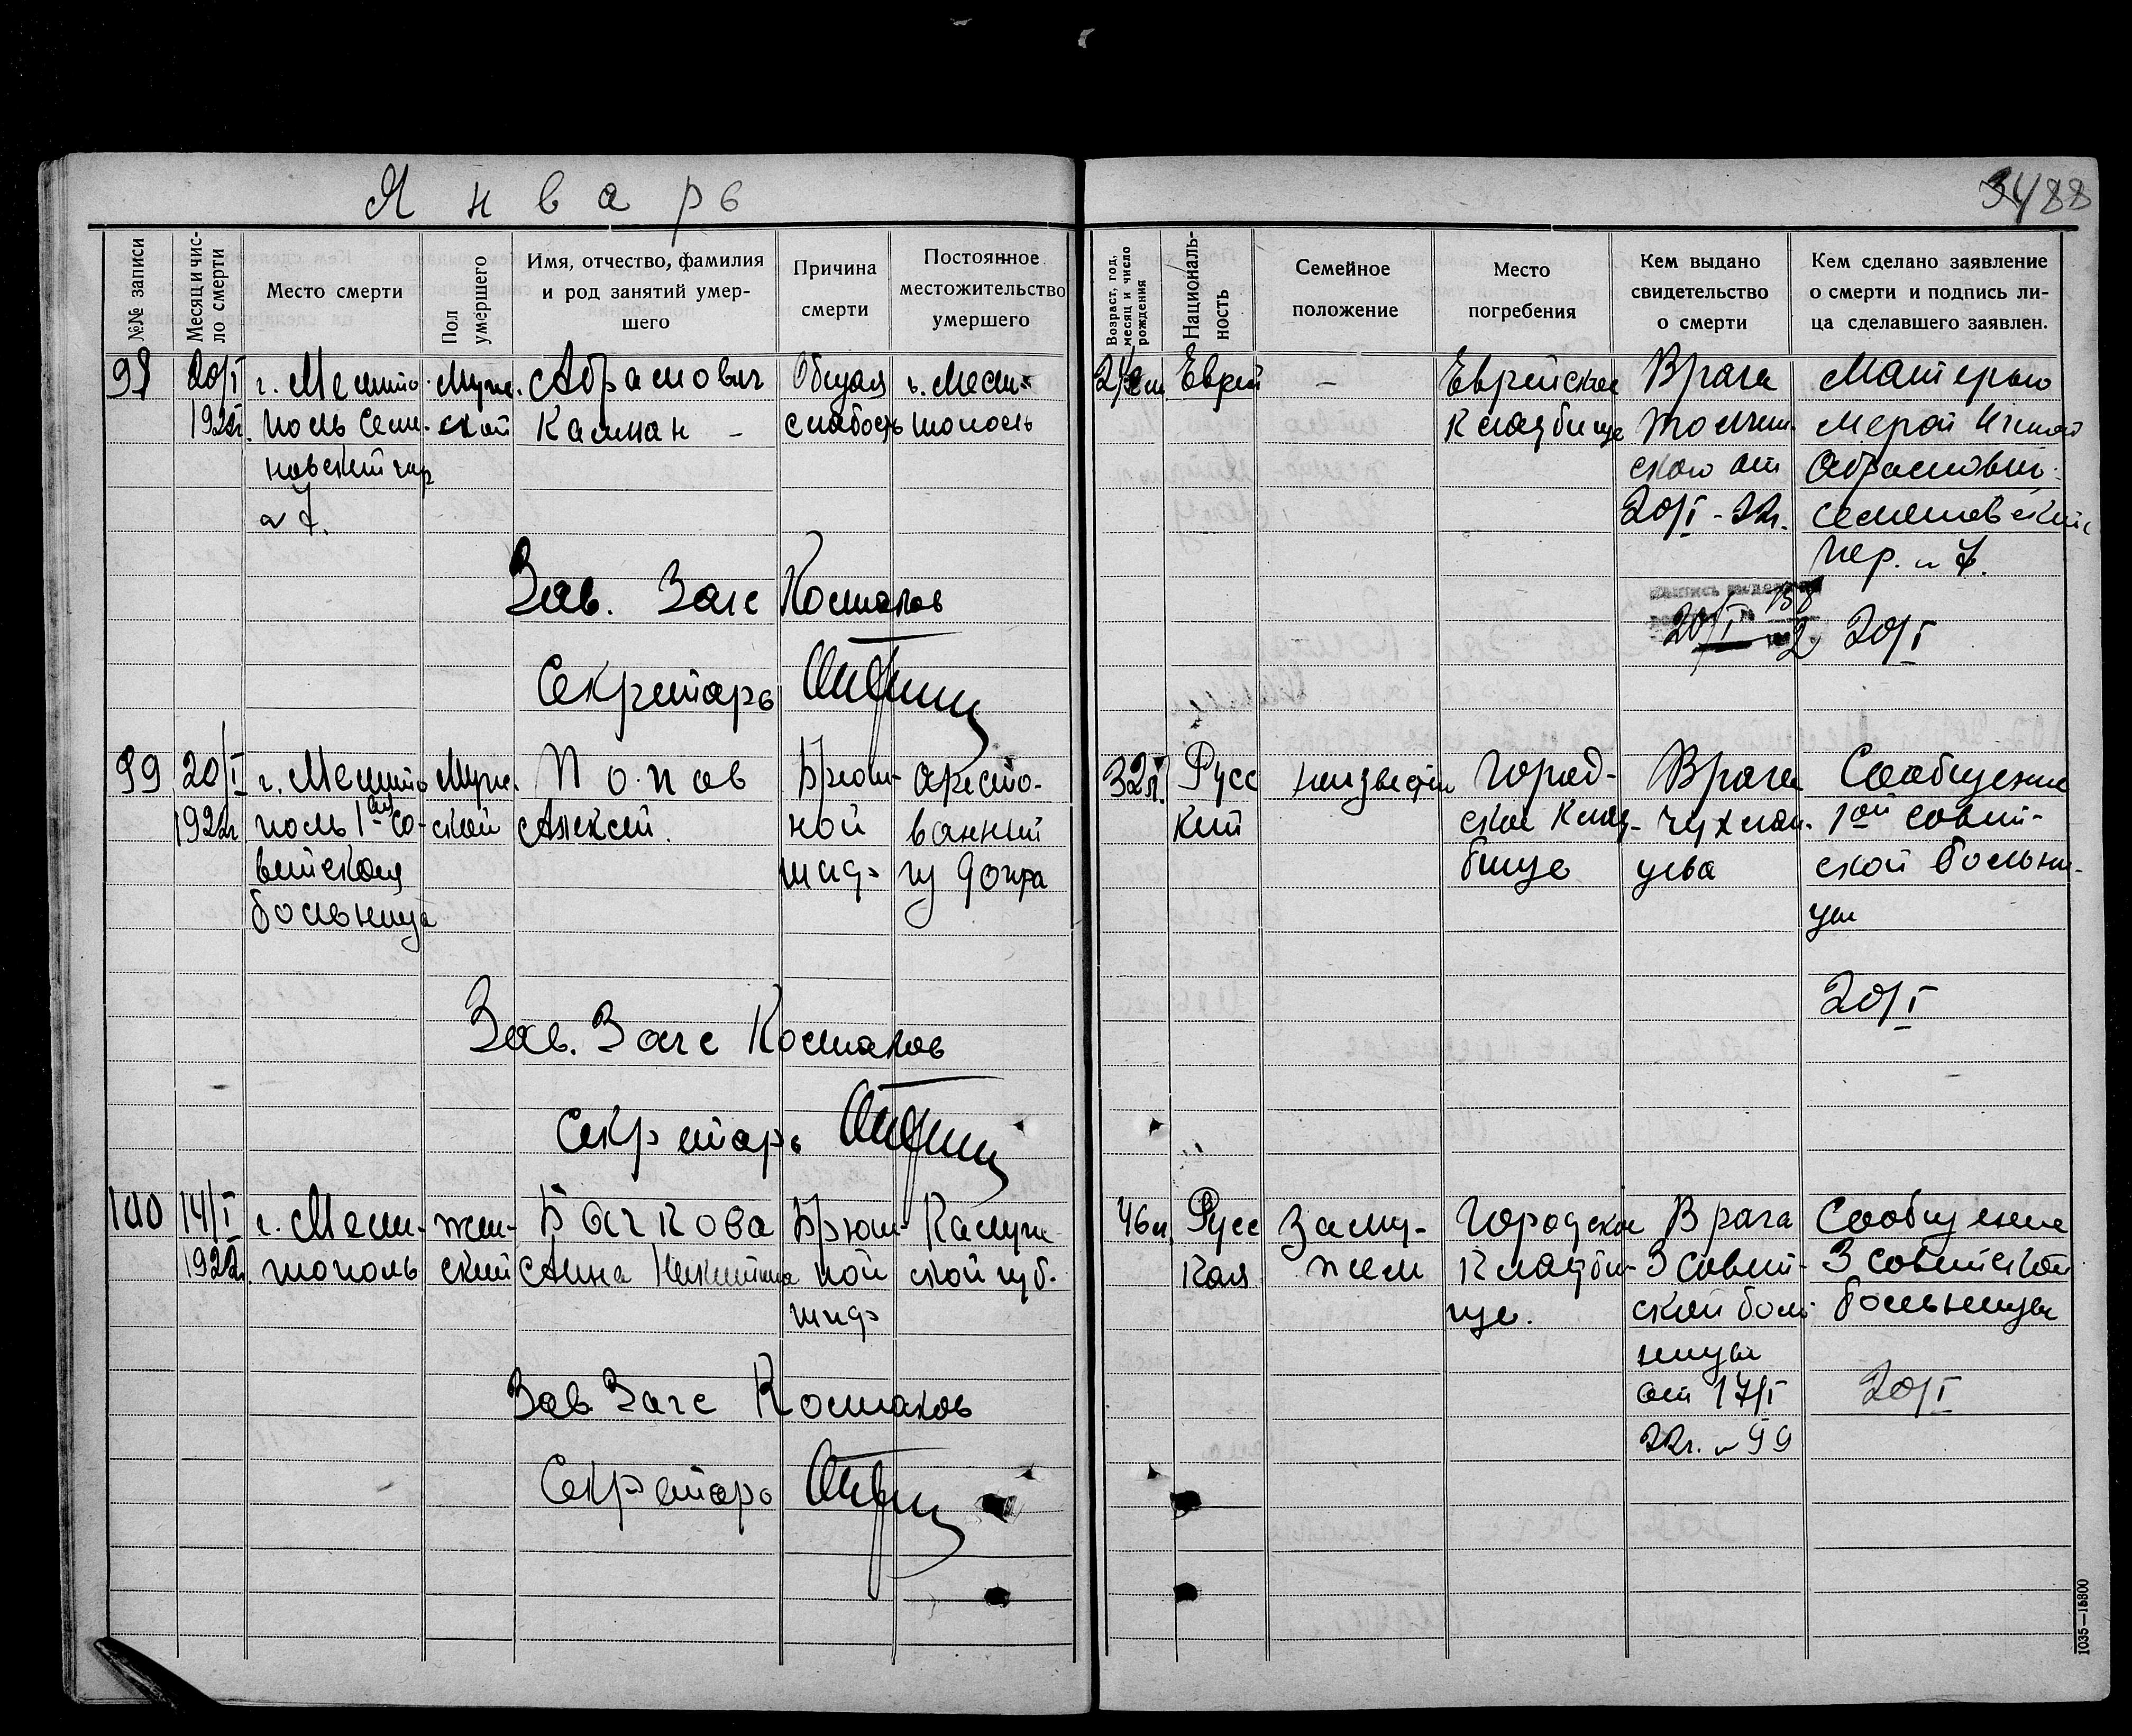 Январь
34/88
№№ записи
Месяц и чис-
ло смерти
Место смерти
Пол
умершего
Имя, отчество, фамилия
и род занятий умер-
шего
Причина
смерти
Постоянное
местожительство
умершего
Возраст, год,
месяц и число
рождения
Националь-
ность
Семейное
положение
Место
погребения
Кем выдано
свидетельство
о смерти
Кем сделано заявление
о смерти и подпись ли-
ца сделавшего заявлен.
98
20/I
1922г.
г. Мелито-
поль Семе-
новский пер
№ 7.
Муж.
ской
Абрамович
Калман -
Общая
слабость
г. Мели-
тополь
Еврей
-
Еврейское
Кладбище
Врача
от
20/I - 22г.
Матерью
Абрамович
пер. № 7.
20/I
158
2
20/I
Зав. Загс Костаков
Секретарь
99
20/I
1922г
г. Мелито
поль 1ая со-
ветская
больница
Муж.
ской
Попов
Алексей.
Брюш-
ной
тиф
Аресто-
ванный
из допра
32л.
Русс
кий
неизвестн
Город-
ское Клад-
бище
Врача
Сообщение
1ой совет-
ской больни-
цы
20/I
Зав. Загс Костаков
Секретарь
100
14/I
1922г.
г. Мели-
тополь
жен-
ский
Бачкова
Анна Никитична
Брюш-
ной
тиф
Калуж-
ской губ.
46л.
Русс
кая
Заму-
жем
Городское
Кладби-
ще.
Врача
3 совет-
ской боль-
ницы
от 17/I
22г. № 99
Сообщение
3 советской
больницы
20/I
Зав Загс Костаков
Секретарь
1035—15800